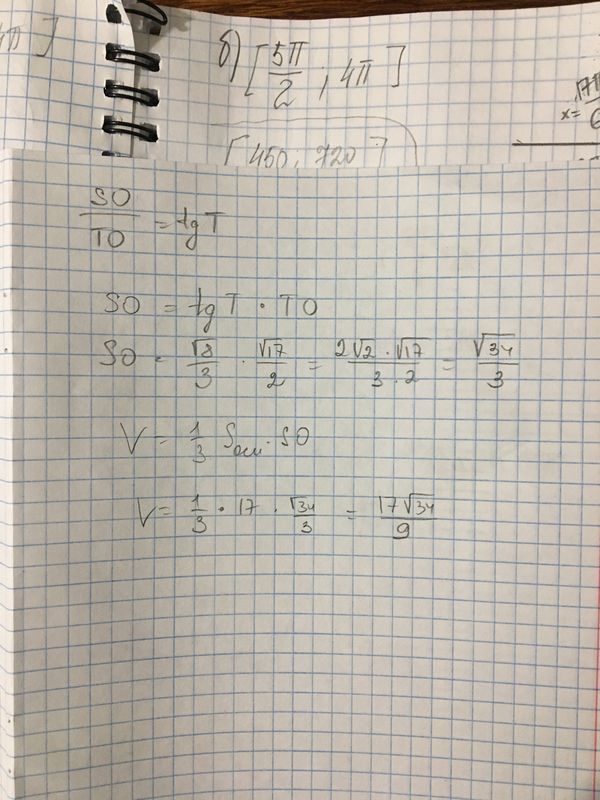 π]
б) [5π/2 ; 4π]
[450; 720]
x= 17π/6
SO/TO = tg T
SO = tg T · TO
SO = √8/3 · √17/2 = 2√2 · √17/3 · 2 = √34/3
V = 1/3 Sосн · SO
V = 1/3 · 17 · √34/3 = 17√34/9